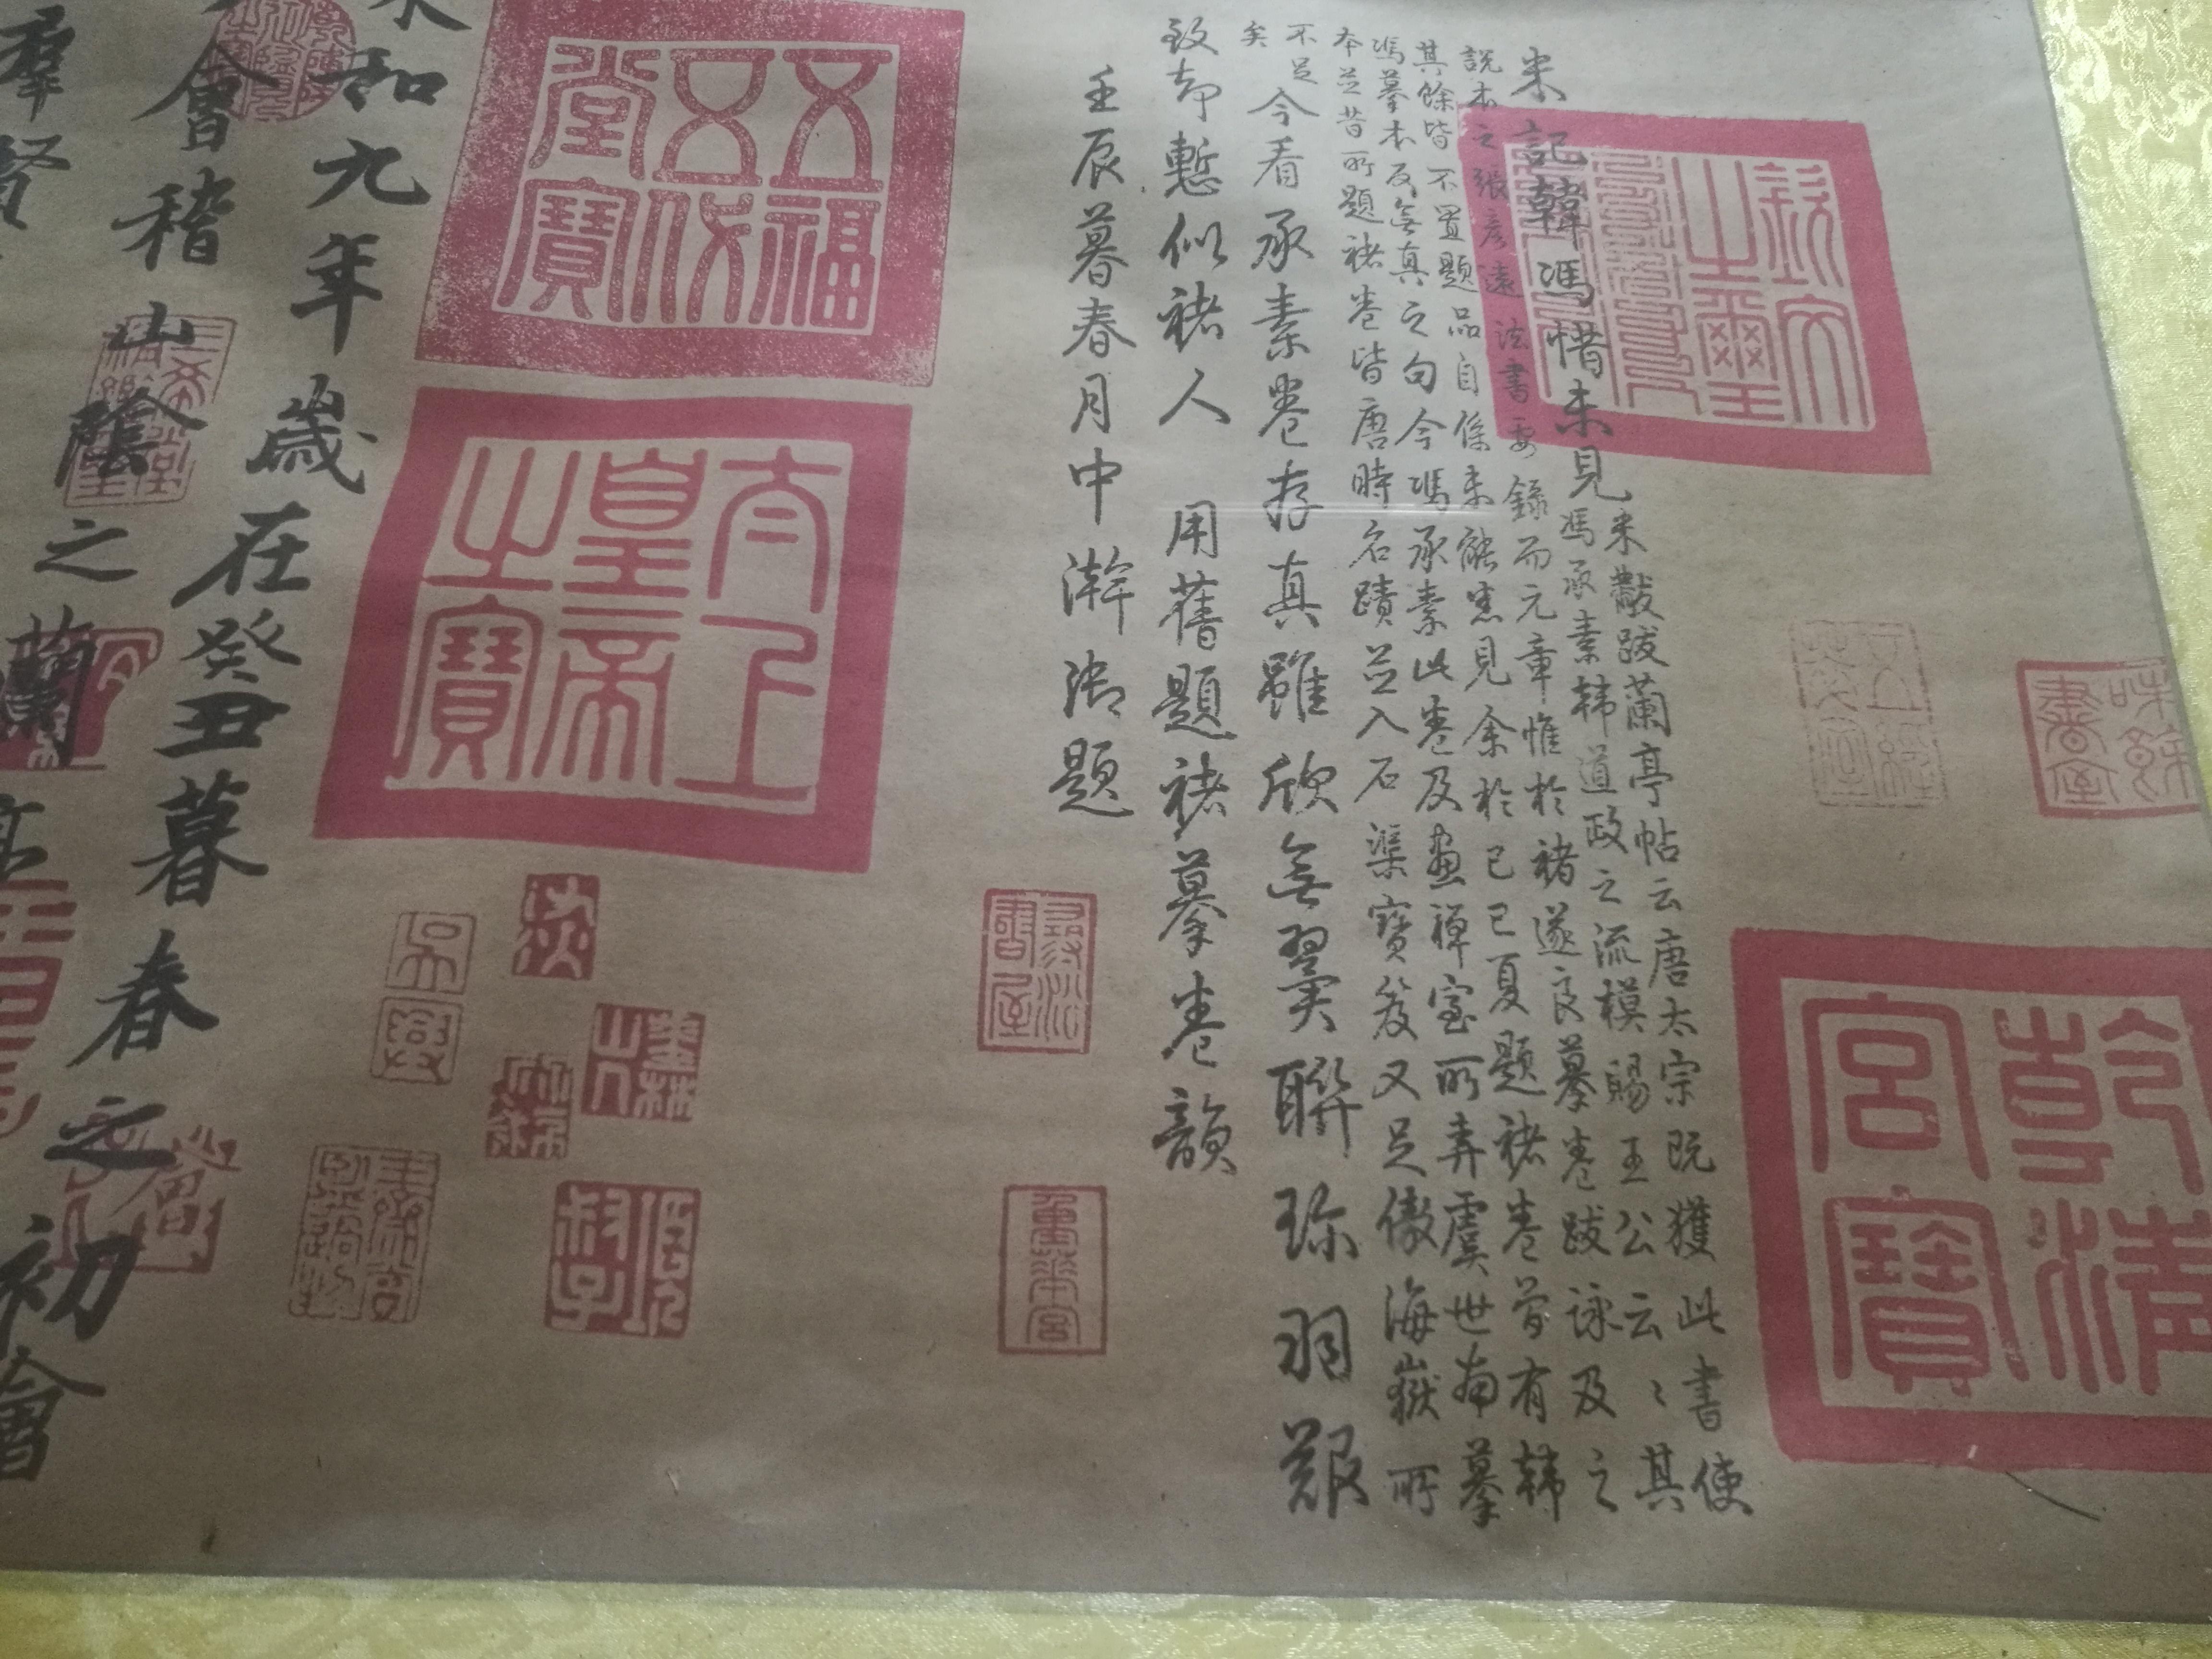 乾清宮寶
味餘書室
欽文之璽
米記韓馮惜未見
米黻跋蘭亭帖云唐太宗既獲此書使
馮承素韓道政之流模賜王公云〻其
說本之張彥遠法書要錄而元章惟於褚遂良摹卷跋詠及之
其餘皆不置題品自係未能悉見余於己巳夏題褚卷曾有韓
馮摹本反無真之句今馮承素此卷及畫禪室所弆虞世南摹
本並昔所題褚卷皆唐時名蹟並入石渠寶笈又足傲海嶽所
不足
矣
今看承素卷存真雖欣無翼聯珎羽艱
致却慙似褚人 用舊題褚摹卷韻
壬辰暮春月中澣御題
尋沿書屋
重華宮
五福五代堂寶
太上皇帝之寶
永和九年歲在癸丑暮春之初會
會稽山陰之蘭亭
羣賢